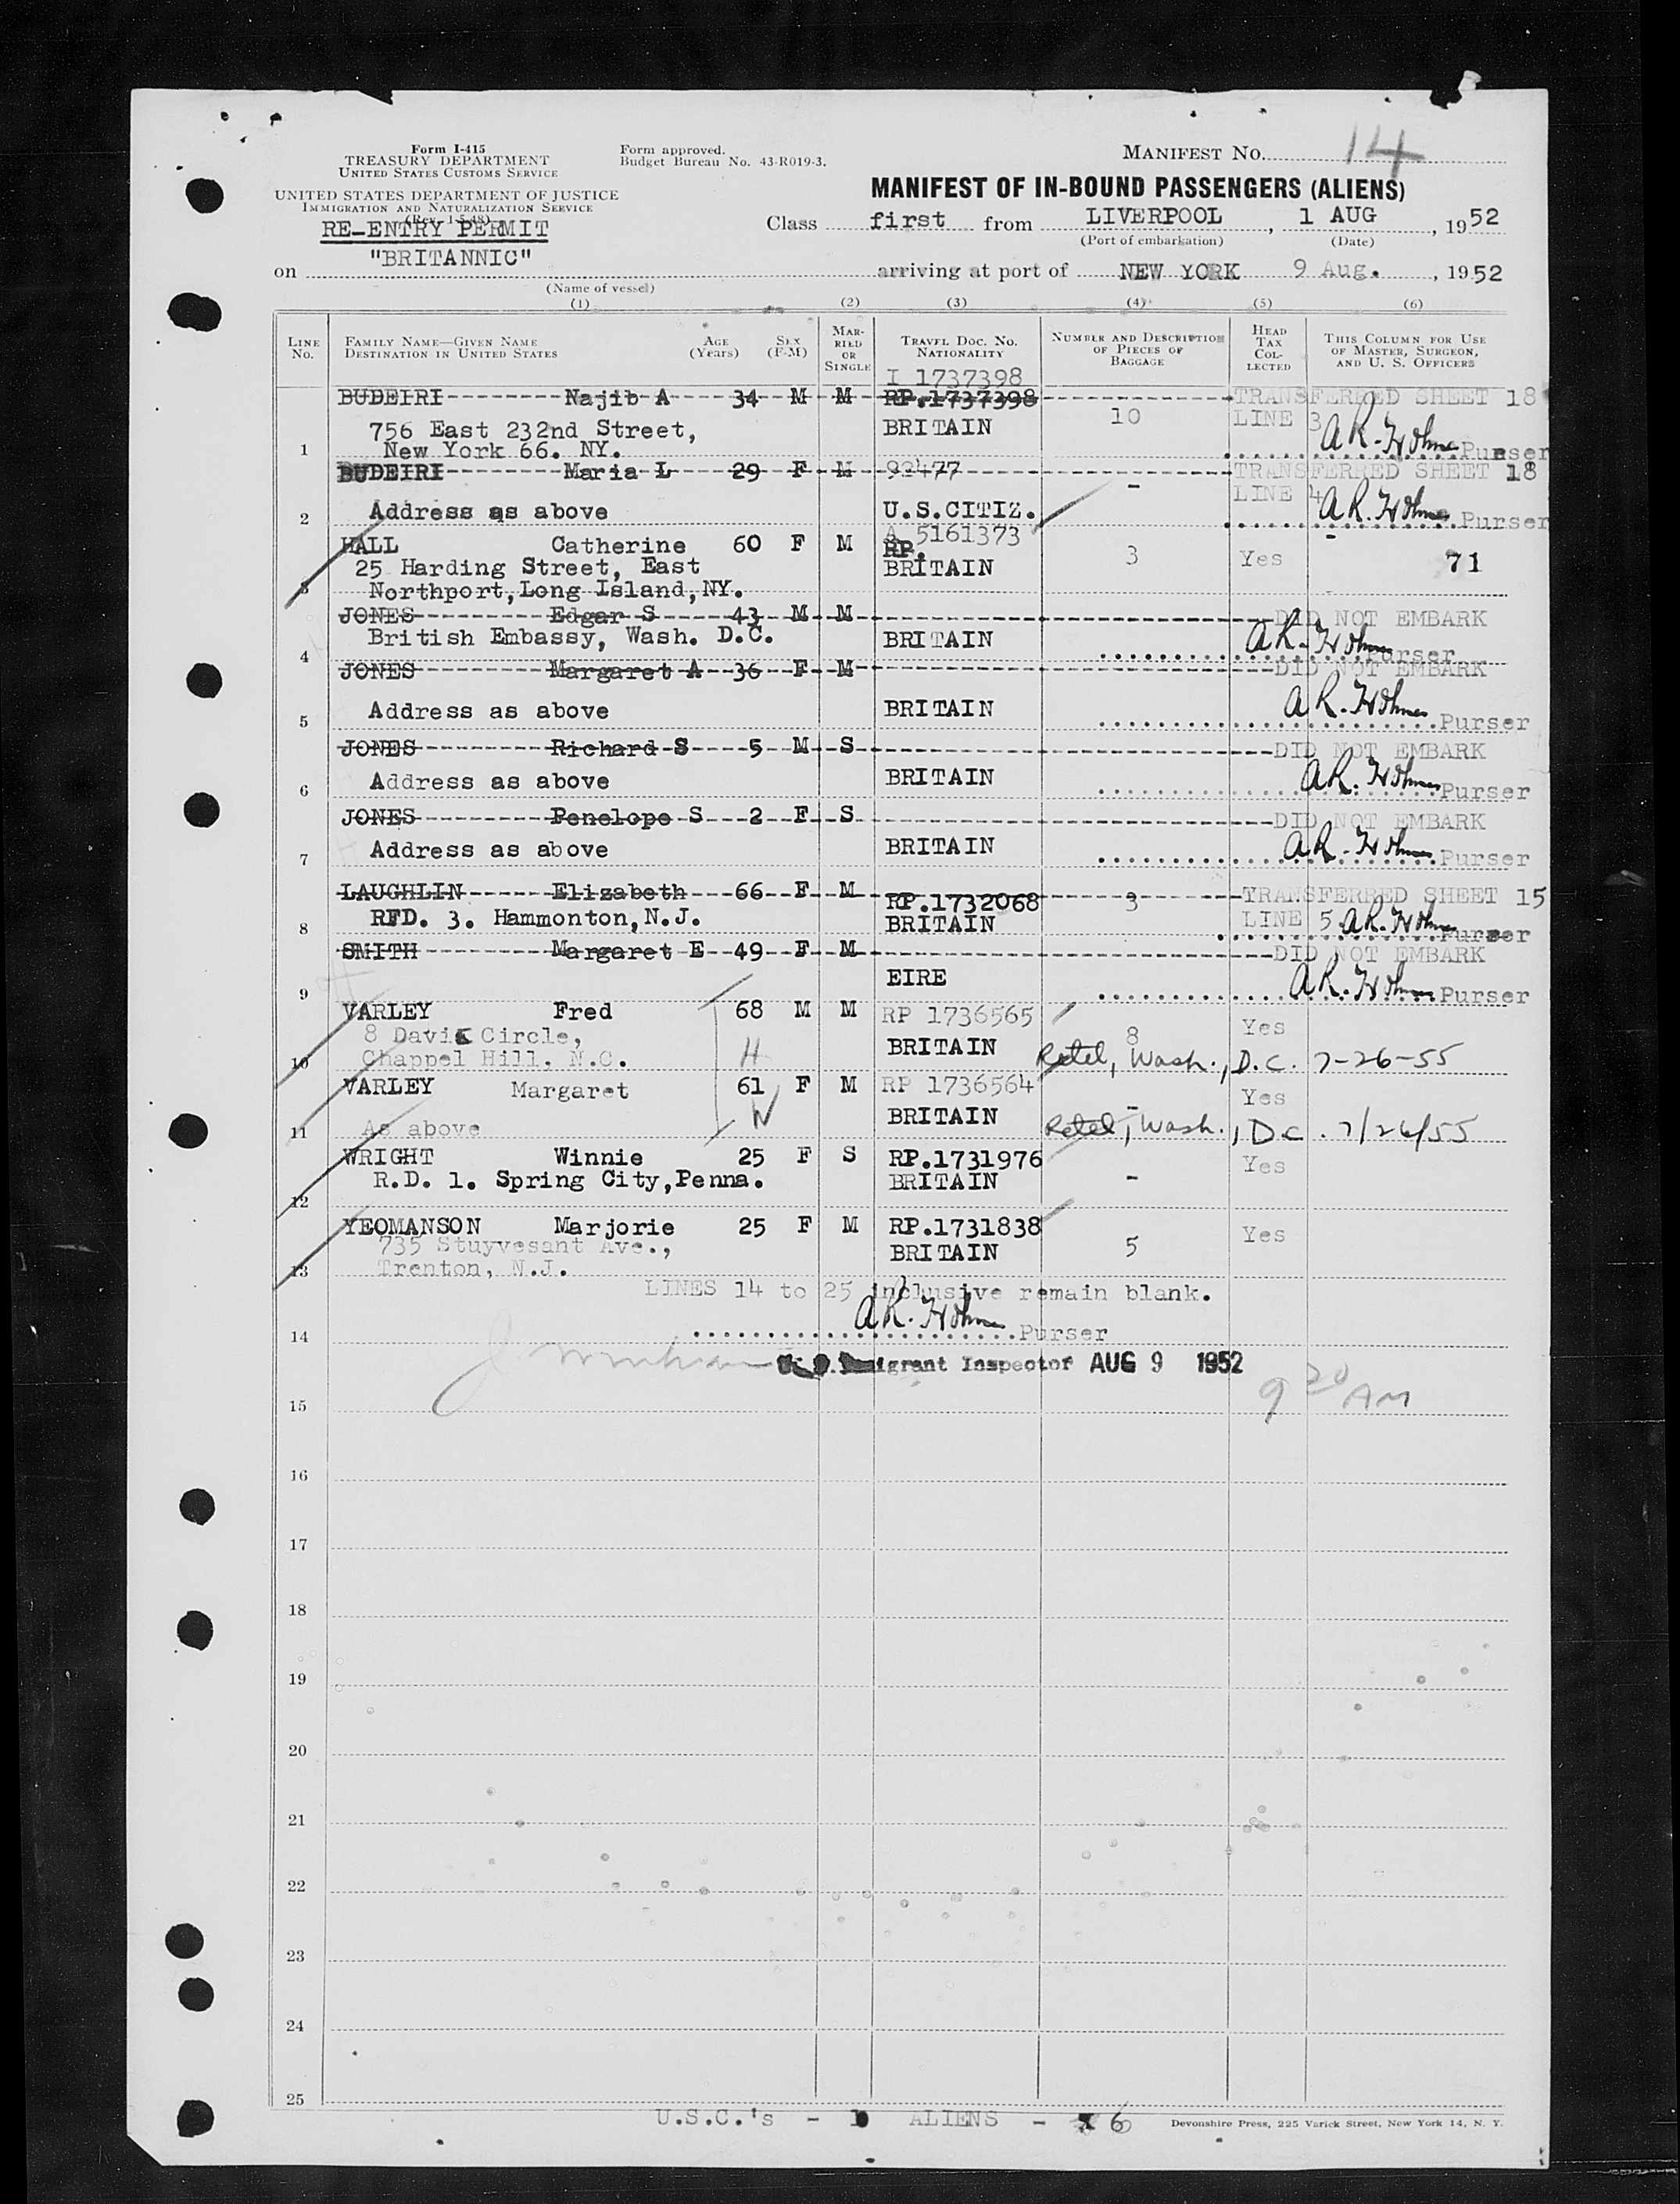 Form I-415
TREASURY DEPARTMENT
UNITED STATES CUSTOMS SERVICE
UNITED STATES DEPARTMENT OF JUSTICE
IMMIGRATION AND NATURALIZATION SERVICE
(Rev. 1-5-48)
RE-ENTRY PERMIT
Form approved.
Budget Bureau No. 43-R019-3.
MANIFEST NO. 14
MANIFEST OF IN-BOUND PASSENGERS (ALIENS)
Class first from LIVERPOOL, 1 AUG, 1952
(Port of embarkation) (Date)
on "BRITANNIC" arriving at port of NEW YORK 9 Aug., 1952
(Name of vessel)
(1) (2) (3) (4) (5) (6)
LINE No. FAMILY NAME—GIVEN NAME DESTINATION IN UNITED STATES AGE (Years) SEX (F-M) MARRIED OR SINGLE TRAVEL DOC. NO. NATIONALITY NUMBER AND DESCRIPTION OF PIECES OF BAGGAGE HEAD TAX COLLECTED THIS COLUMN FOR USE OF MASTER, SURGEON, AND U. S. OFFICERS
I 1737398
BUDEIRI Najib A 34 M M RP.1737398 TRANSFERRED SHEET 18
756 East 232nd Street, BRITAIN 10 LINE 3
1 New York 66. NY. A R. Holme Purser
BUDEIRI Maria L 29 F M 92477 TRANSFERRED SHEET 18
- LINE 4
2 Address as above U.S.CITIZ. A R. Holme Purser
A 5161373
HALL Catherine 60 F M RP. 3 Yes - 71
25 Harding Street, East BRITAIN
3 Northport, Long Island, NY.
JONES Edgar S 43 M M DID NOT EMBARK
British Embassy, Wash. D.C. BRITAIN
4 A R. Holme Purser
JONES Margaret A 36 F M DID NOT EMBARK
5 Address as above BRITAIN A R. Holme Purser
JONES Richard S 5 M S DID NOT EMBARK
6 Address as above BRITAIN A R. Holme Purser
JONES Penelope S 2 F S DID NOT EMBARK
7 Address as above BRITAIN A R. Holme Purser
LAUGHLIN Elizabeth 66 F M RP.1732068 3 TRANSFERRED SHEET 15
8 RFD. 3. Hammonton, N.J. BRITAIN LINE 5 A R. Holme Purser
SMITH Margaret E 49 F M DID NOT EMBARK
9 EIRE A R. Holme Purser
VARLEY Fred 68 M M RP 1736565 8 Yes
8 Davie Circle, BRITAIN
10 Chappel Hill, N.C. H Retd, Wash., D.C. 7-26-55
VARLEY Margaret 61 F M RP 1736564 - Yes
11 As above W BRITAIN Retd, Wash., D.C. 7/26/55
WRIGHT Winnie 25 F S RP.1731976 Yes
12 R.D. 1. Spring City, Penna. BRITAIN -
YEOMANSON Marjorie 25 F M RP.1731838 Yes
735 Stuyvesant Ave., BRITAIN 5
13 Trenton, N.J.
LINES 14 to 25 inclusive remain blank.
14 A R. Holme Purser
Immigrant Inspector AUG 9 1952
15 9 20 AM
16
17
18
19
20
21
22
23
24
25
U.S.C.'s - ALIENS - 6
Devonshire Press, 225 Varick Street, New York 14, N. Y.